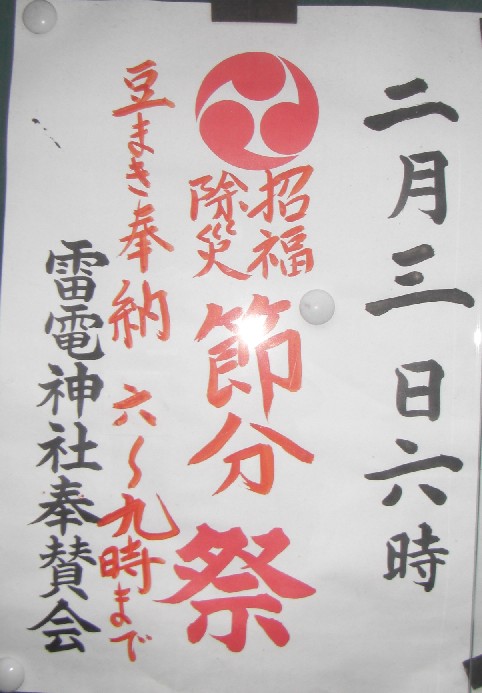 二月三日六時
招福
除災
節分祭
豆まき奉納 六〜九時まで
雷電神社奉賛会